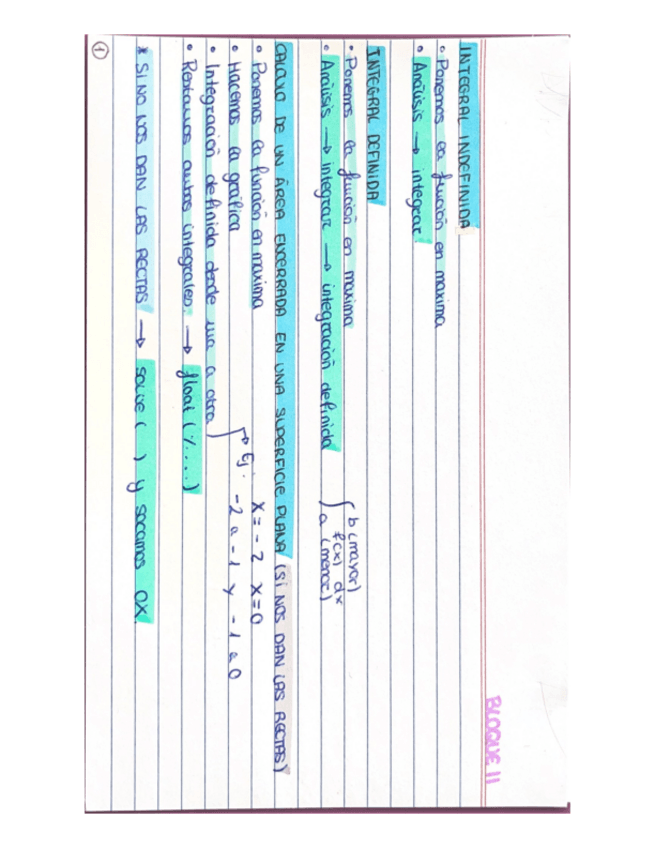 BLOQUE II
INTEGRAL INDEFINIDA
• Ponemos la función en maxima
• Análisis → integrar
INTEGRAL DEFINIDA
• Ponemos la función en maxima
• Análisis → integrar → integración definida
∫ b (mayor)
f(x) dx
a (menor)
CALCULO DE UN ÁREA ENCERRADA EN UNA SUPERFICIE PLANA (SI NOS DAN LAS RECTAS)
• Ponemos la función en maxima
x = -2 x = 0
• Hacemos la gráfica
→ Ej: -2 a -1 y -1 a 0
• Integración definida desde una a otra
• Restamos ambas integrales. → float (%....)
* SI NO NOS DAN LAS RECTAS → SOLVE ( ) y sacamos OX
1